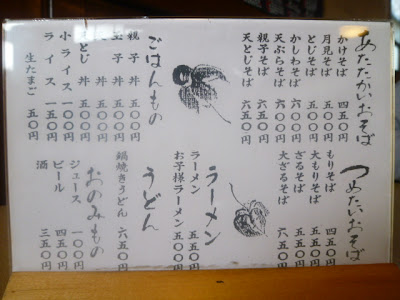 あたたかいおそば
かけそば 四五〇円
月見そば 五〇〇円
とじそば
かしわそば
天ぷらそば
親子そば
天とじそば 六五〇円
つめたいおそば
もりそば 四五〇円
大もりそば 五五〇円
ざるそば
大ざるそば 六五〇円
ラーメン
ラーメン 五五〇円
お子様ラーメン 五〇〇円
ごはんもの
親子丼
玉子丼
とじ丼 五〇〇円
小ライス 一〇〇円
ライス 一五〇円
生たまご 五〇円
うどん
鍋焼きうどん 六五〇円
おのみもの
ジュース 一〇〇円
ビール 四五〇円
酒 三五〇円